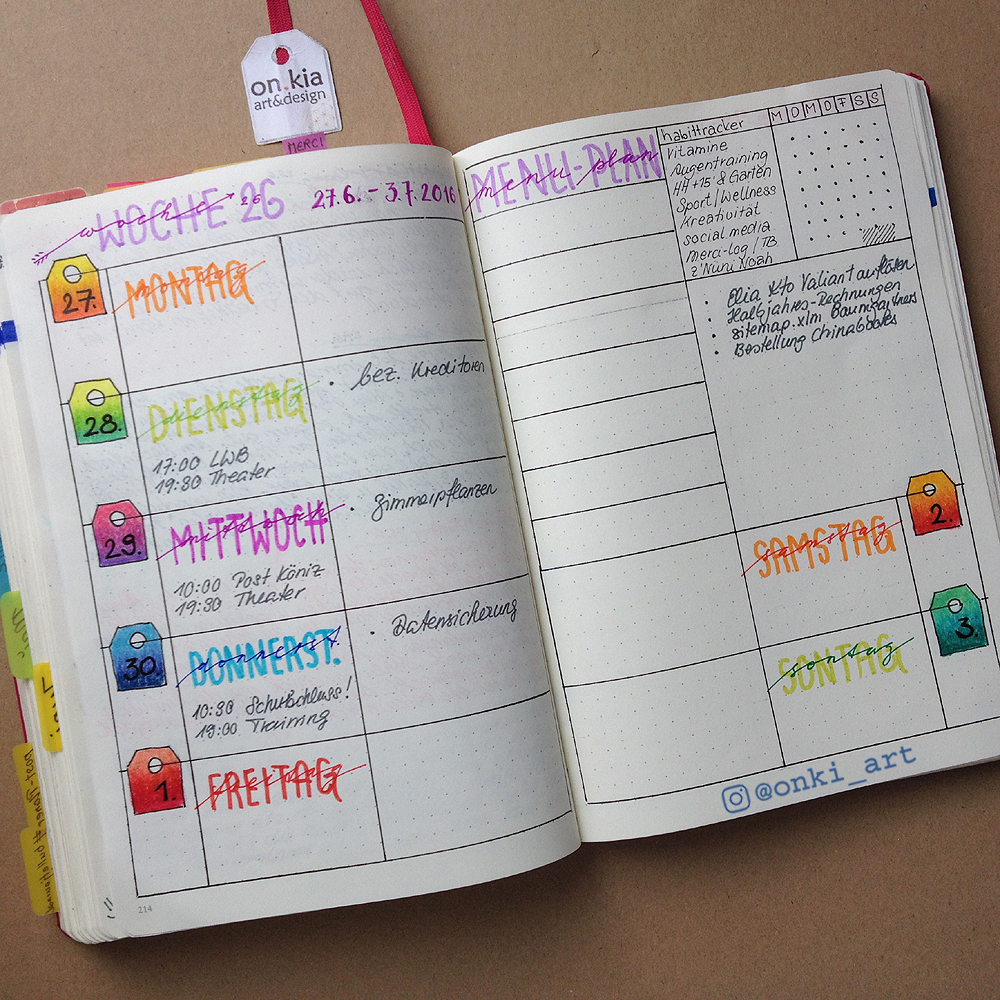 on.kia
art&design
MERCI
WOCHE 26
woche 26
27.6. - 3.7.2016
27.
MONTAG
montag
28.
DIENSTAG
dienstag
17:00 LWB
19:30 Theater
• bez. Kreditoren
29.
MITTWOCH
mittwoch
10:00 Post Köniz
19:30 Theater
• Zimmerpflanzen
30.
DONNERST.
donnerst.
10:30 Schulschluss!
19:00 Training
• Datensicherung
1.
FREITAG
freitag
214
MENU-PLAN
menu plan
habittracker
M D M D F S S
Vitamine
Augentraining
HH +15' & Garten
Sport/Wellness
Kreativität
social media
Merci-log / TB
z'Nüni Noah
• Elia Kto Valiant auflösen
• Halbjahres-Rechnungen
• sitemap.xlm Baumgartners
• Bestellung
SAMSTAG
samstag
2.
SONTAG
sontag
3.
@onki_art